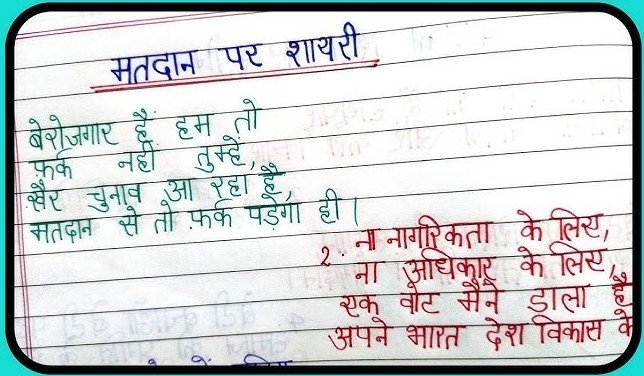 मतदान पर शायरी
बेरोजगार हैं हम तो
फ़र्क नहीं तुम्हें,
खैर चुनाव आ रहा है,
मतदान से तो फ़र्क पड़ेगा ही।
2. ना नागरिकता के लिए,
ना अधिकार के लिए,
एक वोट मैंने डाला है
अपने भारत देश विकास के